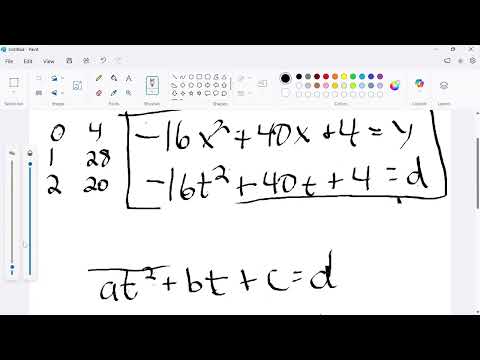 Untitled - Paint
File Edit View
Selection Image Tools Brushes Shapes Size Colors Layers
0 4
1 28
2 20
-16x²+40x+4=y
-16t²+40t+4=d
at²+bt+c=d